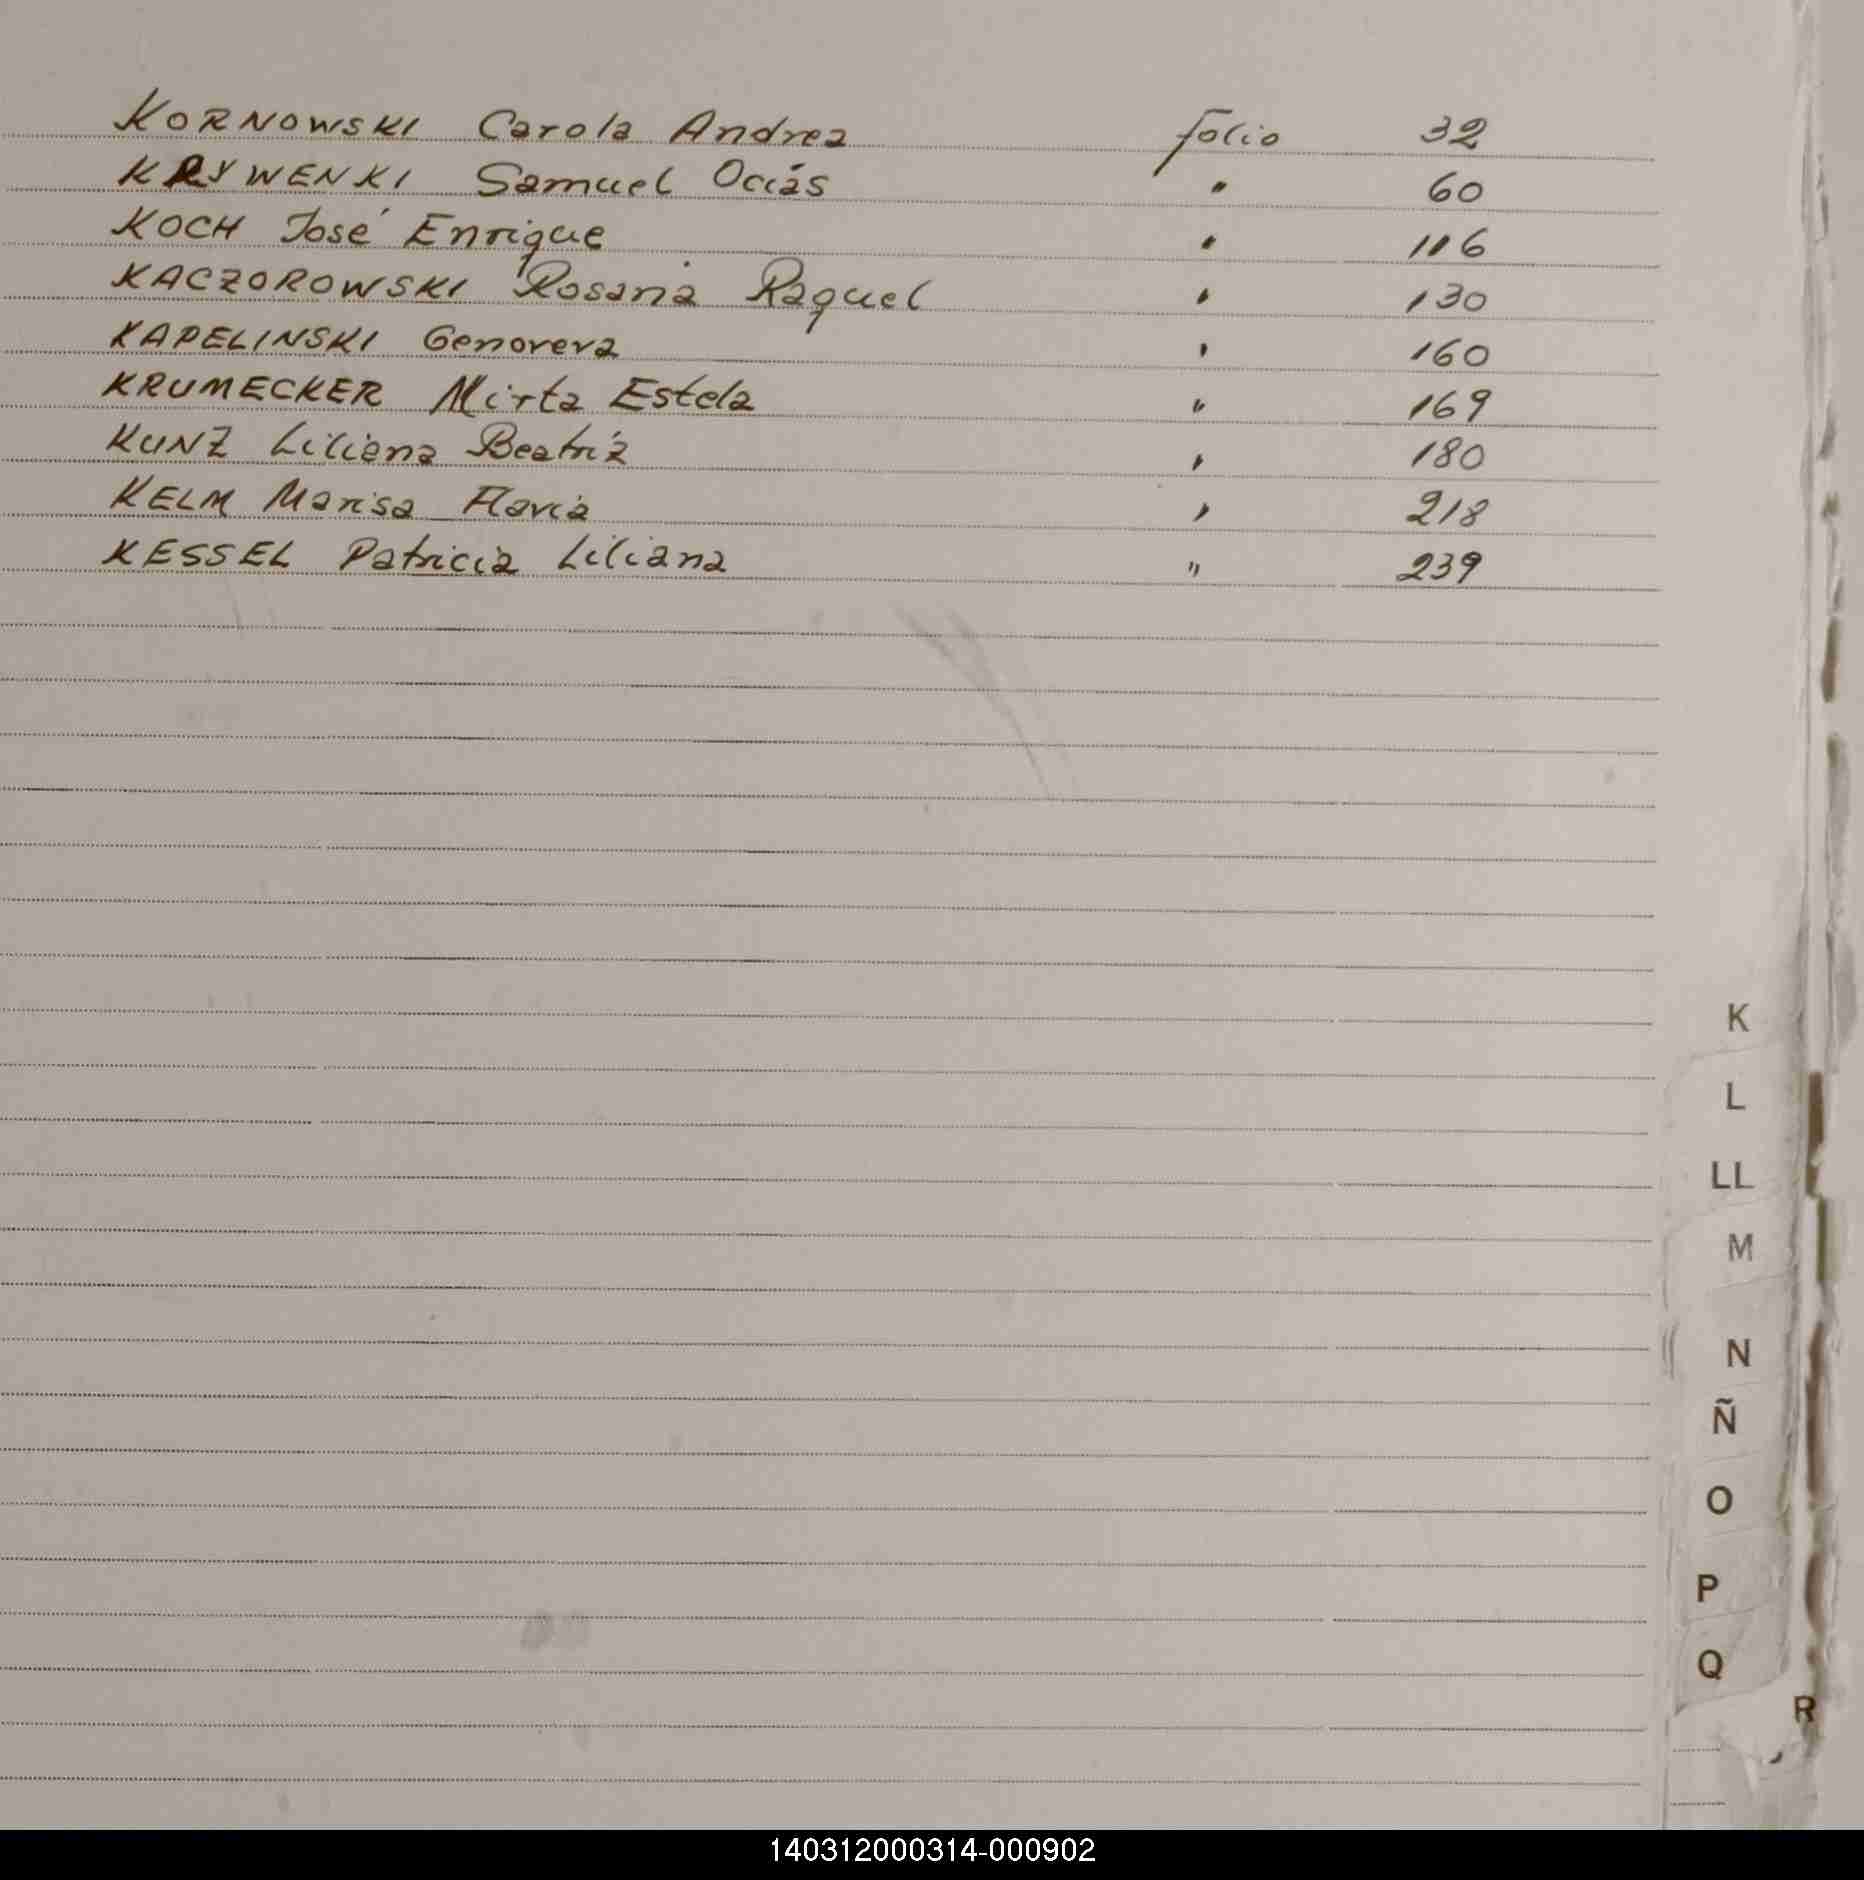 KORNOWSKI Carola Andrea folio 32
KRYWENKI Samuel Ociás " 60
KOCH José Enrique " 116
KACZOROWSKI Rosana Raquel " 130
KAPELINSKI Genoveva " 160
KRUMECKER Mirta Estela " 169
KUNZ Liliana Beatriz " 180
KELM Marisa Flavia " 218
KESSEL Patricia Liliana " 239
K
L
LL
M
N
Ñ
O
P
Q
R
140312000314-000902